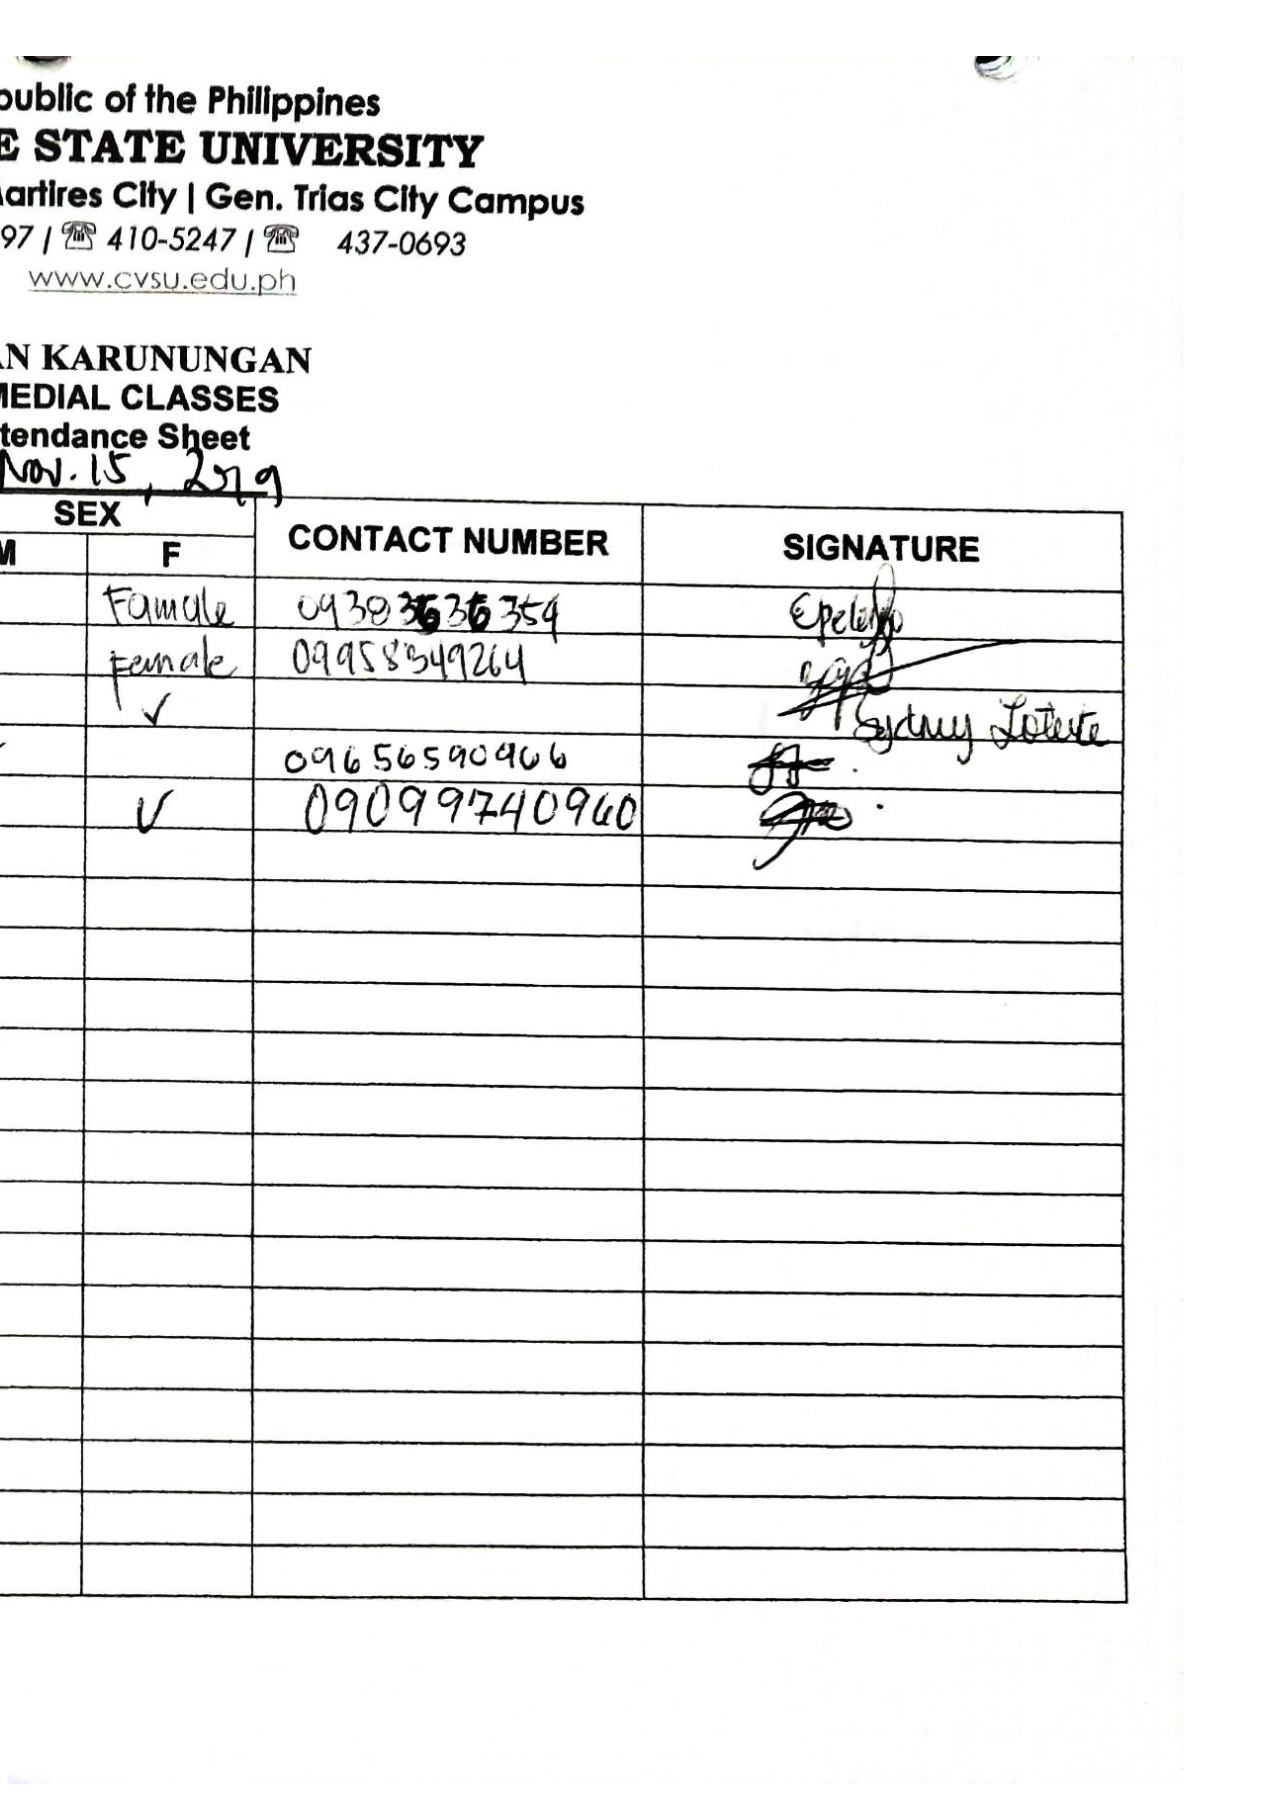 public of the Philippines
E STATE UNIVERSITY
artires City | Gen. Trias City Campus
97 | ☏ 410-5247 | ☏ 437-0693
www.cvsu.edu.ph
AN KARUNUNGAN
MEDIAL CLASSES
tendance Sheet
Nov. 15, 2019
SEX CONTACT NUMBER SIGNATURE
M F
Famale
Female 09958349264
✓ Sydney
09656590966
✓ 09099740960